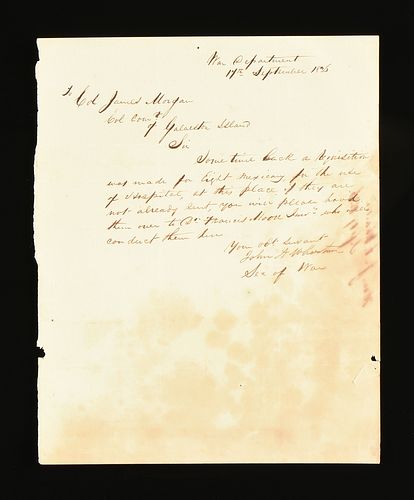 War Department
17th September 1836
To Col James Morgan
Col Comdt
of Galveston Island
Sir
Some time back a requisition
was made for Eight Mexicans for the use
of Hospital, at this place if they are
not already sent you will please hand
them over to Dr Francis Moore Junr who will
conduct them here
Your obt servant
John A Wharton
Sec of War